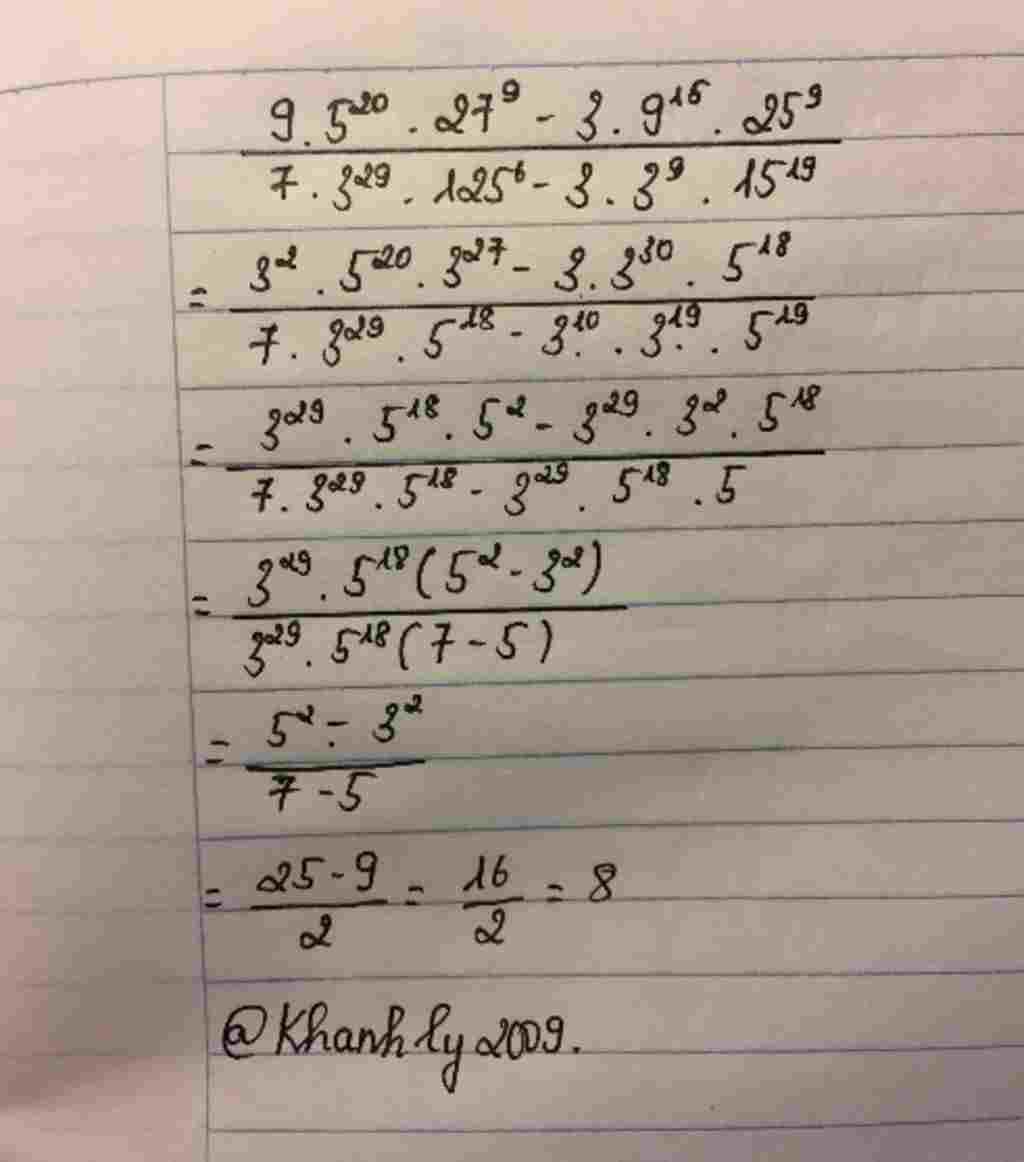 9 . 5²⁰ . 27⁹ - 3 . 9¹⁵ . 25⁹
7 . 3²⁹ . 125⁶ - 3 . 3⁹ . 15¹⁹
= 3² . 5²⁰ . 3²⁷ - 3 . 3³⁰ . 5¹⁸
7 . 3²⁹ . 5¹⁸ - 3¹⁰ . 3¹⁹ . 5¹⁹
= 3²⁹ . 5¹⁸ . 5² - 3²⁹ . 3² . 5¹⁸
7 . 3²⁹ . 5¹⁸ - 3²⁹ . 5¹⁸ . 5
= 3²⁹ . 5¹⁸ ( 5² - 3² )
3²⁹ . 5¹⁸ ( 7 - 5 )
= 5² - 3²
7 - 5
= 25 - 9 = 16 = 8
2 2
@Khanhly2009.